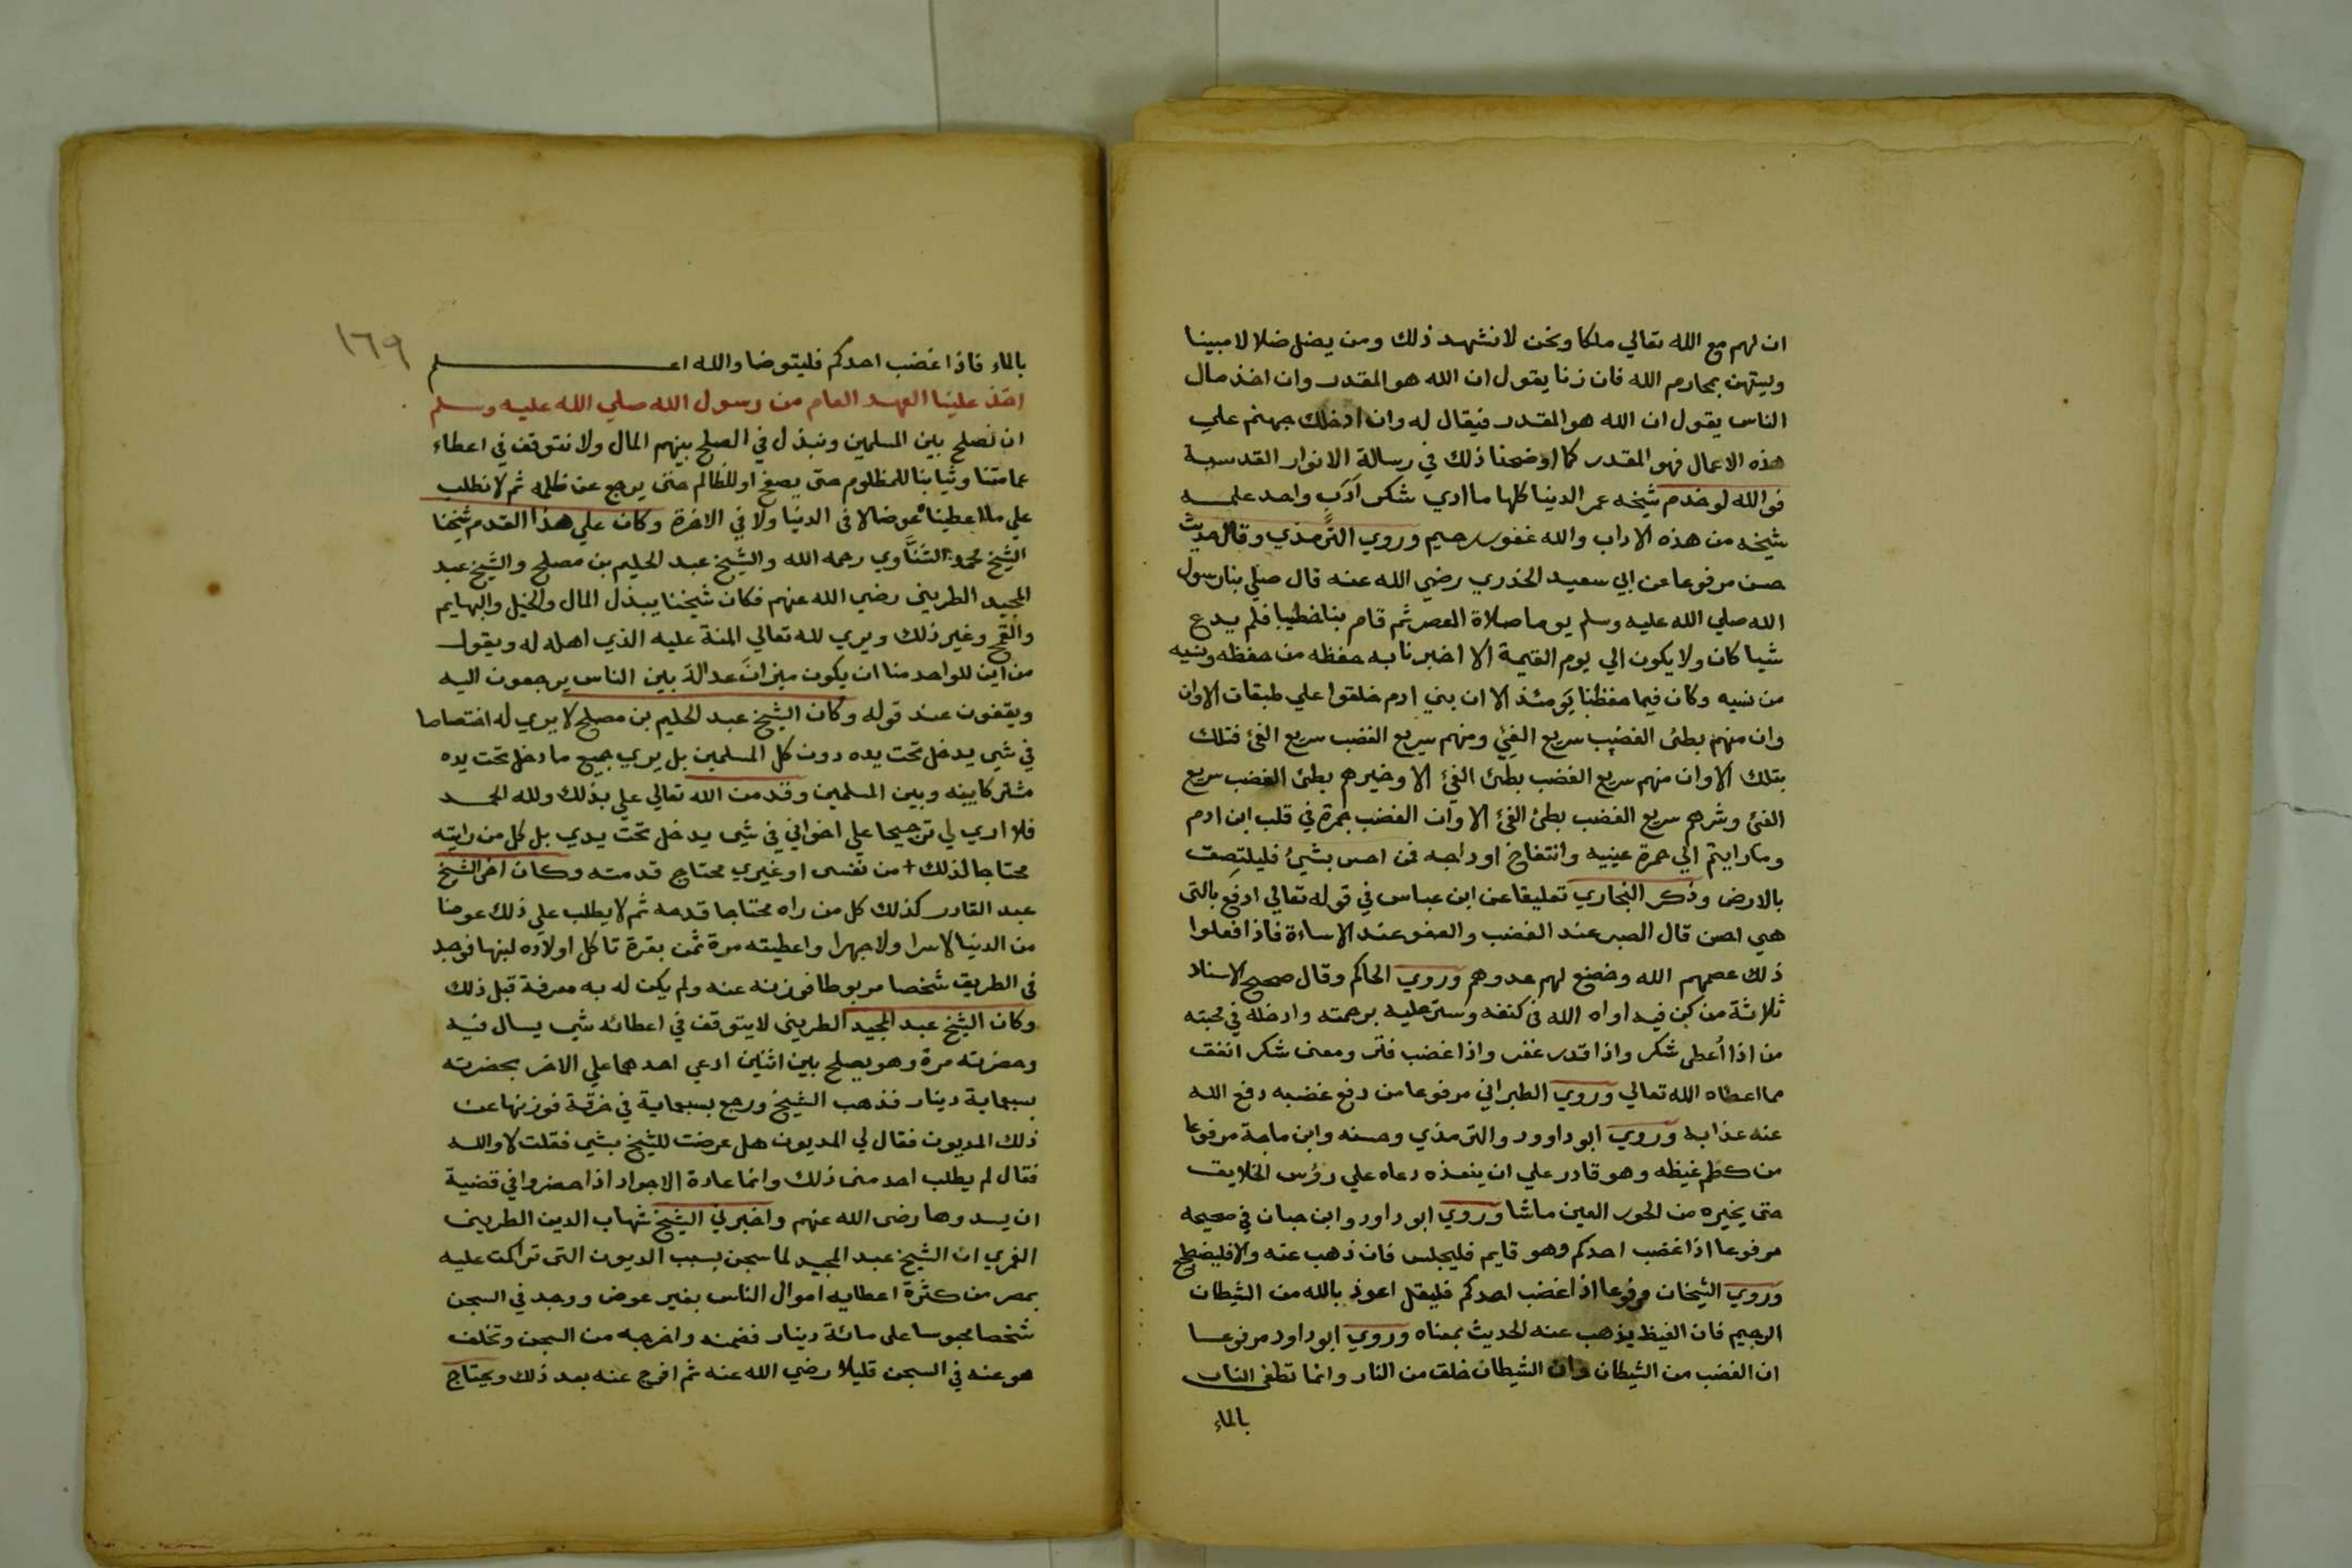 ان لهم مع الله تعالي ملكا ونحن لا نشهد ذلك ومن يضل ضلالا مبينا
ويستهن بمحارم الله فان زنا يقول ان الله هو المقدر وان اخذ مال
الناس يقول ان الله هو المقدر فيقال له وان ادخلك جهنم علي
هذه الاعمال فهو المقدر كما اوضحنا ذلك في رسالة الانوار القدسية
فوالله لو خدم شيخه عمر الدنيا كلها ما ادي شكر ادب واحد علمه
شيخه من هذه الاداب والله غفور رحيم وروي الترمذي وقال حديث
حسن مرفوعا عن ابي سعيد الخدري رضي الله عنه قال صلي بنا رسول
الله صلي الله عليه وسلم يوما صلاة العصر ثم قام بنا خطيبا فلم يدع
شيا كان ولا يكون الي يوم القيمة الا اخبرنا به حفظه من حفظه ونسيه
من نسيه وكان فيما حفظنا يومئذ الا ان بني ادم خلقوا علي طبقات الا وان
وان منهم بطئ الغضب سريع الفئ ومنهم سريع الغضب سريع الفئ فتلك
بتلك الا وان منهم سريع الغضب بطئ الفئ الا وخيرهم بطئ الغضب سريع
الفئ وشرهم سريع الغضب بطئ الفئ الا وان الغضب جمرة في قلب ابن ادم
وما رايتم الي حمرة عينيه وانتفاخ اوداجه فمن احس بشئ فليلتصق
بالارض وذكر البخاري تعليقا عن ابن عباس في قوله تعالي ادفع بالتي
هي احسن قال الصبر عند الغضب والعفو عند الاساءة فاذا فعلوا
ذلك عصمهم الله وخضع لهم عدوهم وروي الحاكم وقال صحيح الاسناد
ثلاثة من كن فيه اواه الله في كنفه وستر عليه برحمته وادخله في محبته
من اذا أعطى شكر واذا قدر غفر واذا غضب فتر ومعني شكر انفق
مما اعطاه الله تعالي وروي الطبراني مرفوعا من دفع غضبه دفع الله
عنه عذابه وروي ابو داوود والترمذي وحسنه وابن ماجة مرفوعا
من كظم غيظه وهو قادر علي ان ينفذه دعاه علي رؤس الخلايق
حتى يخيره من الحور العين ماشا وروي ابو داود وابن حبان في صحيحه
مرفوعا اذا غضب احدكم وهو قايم فليجلس فان ذهب عنه والا فليضطجع
وروي الشيخان مرفوعا اذا غضب احدكم فليقل اعوذ بالله من الشيطان
الرجيم فان الغيظ يذهب عنه الحديث بمعناه وروي ابو داود مرفوعا
ان الغضب من الشيطان وان الشيطان خلق من النار وانما تطفى النار
بالماء
١٦٩
بالماء فاذا غضب احدكم فليتوضا والله اعلم
اخذ علينا العهد العام من رسول الله صلي الله عليه وسلم
ان نصلح بين المسلمين ونبذل في الصلح بينهم المال ولا نتوقف في اعطاء
عمامتنا وثيابنا للمظلوم حتى يصفح او للظالم حتى يرجع عن ظلمه ثم لا نطلب
علي ما اعطيناه عوضا لا في الدنيا ولا في الاخرة وكان علي هذا القدم شيخنا
الشيخ محمد الشناوي رحمه الله والشيخ عبد الحليم بن مصلح والشيخ عبد
المجيد الطريني رضي الله عنهم فكان شيخنا يبذل المال والخيل والبهايم
والقمح وغير ذلك ويري لله تعالي المنة عليه الذي اهله له ويقول
من اين للواحد منا ان يكون ميزان عدالة بين الناس يرجعون اليه
ويقفون عند قوله وكان الشيخ عبد الحليم بن مصلح لا يري له اختصاصا
في شي يدخل تحت يده دون كل المسلمين بل يري جميع ما دخل تحت يده
مشتركا بينه وبين المسلمين وقد من الله تعالي علي بذلك ولله الحمد
فلا اري لي ترجيحا علي اخواني في شي يدخل تحت يدي بل كل من رايته
محتاجا لذلك من نفسى او غيري محتاج قدمته وكان اخى الشيخ
عبد القادر كذلك كل من راه محتاجا قدمه ثم لا يطلب علي ذلك عوضا
من الدنيا لا سرا ولا جهرا واعطيته مرة ثمن بقرة تاكل اولاده لبنها فوجد
في الطريق شخصا مربوطا فوزنه عنه ولم يكن له به معرفة قبل ذلك
وكان الشيخ عبد المجيد الطريني لا يتوقف في اعطائه شي يسال فيه
وحضرته مرة وهو يصلح بين اثنين ادعي احدهما علي الاخر بحضرته
بسبعماية دينار فذهب الشيخ ورجع بسبعماية في خرقة فوزنها عن
ذلك المديون فقال لي المديون هل عرضت للشيخ بشي فقلت لا والله
فقال لم يطلب احد منى ذلك وانما عادة الاجواد اذا حضروا في قضية
ان يسدوها رضى الله عنهم واخبرني الشيخ شهاب الدين الطريني
الغمري ان الشيخ عبد المجيد لما سجن بسبب الديون التى تراكمت عليه
بمصر من كثرة اعطايه اموال الناس بغير عوض ووجد في السجن
شخصا محبوسا على مائة دينار فضمنه واخرجه من السجن وتخلف
هو عنه في السجن قليلا رضي الله عنه ثم افرج عنه بعد ذلك ويحتاج